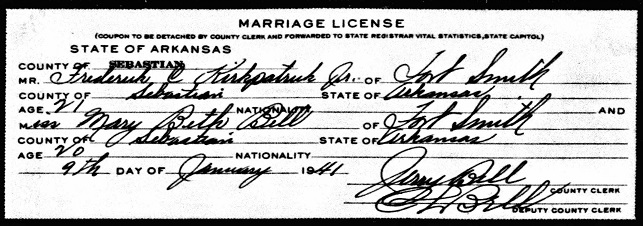 MARRIAGE LICENSE
(COUPON TO BE DETACHED BY COUNTY CLERK AND FORWARDED TO STATE REGISTRAR VITAL STATISTICS, STATE CAPITOL)
STATE OF ARKANSAS
COUNTY OF SEBASTIAN
MR. Frederick C Kirkpatrick Jr. OF Fort Smith
COUNTY OF Sebastian STATE OF Arkansas
AGE 21 NATIONALITY AND
Miss Mary Beth Bell OF Fort Smith
COUNTY OF Sebastian STATE OF Arkansas
AGE 20 NATIONALITY
9th DAY OF January 1941
Jerry Bell COUNTY CLERK
Bell DEPUTY COUNTY CLERK